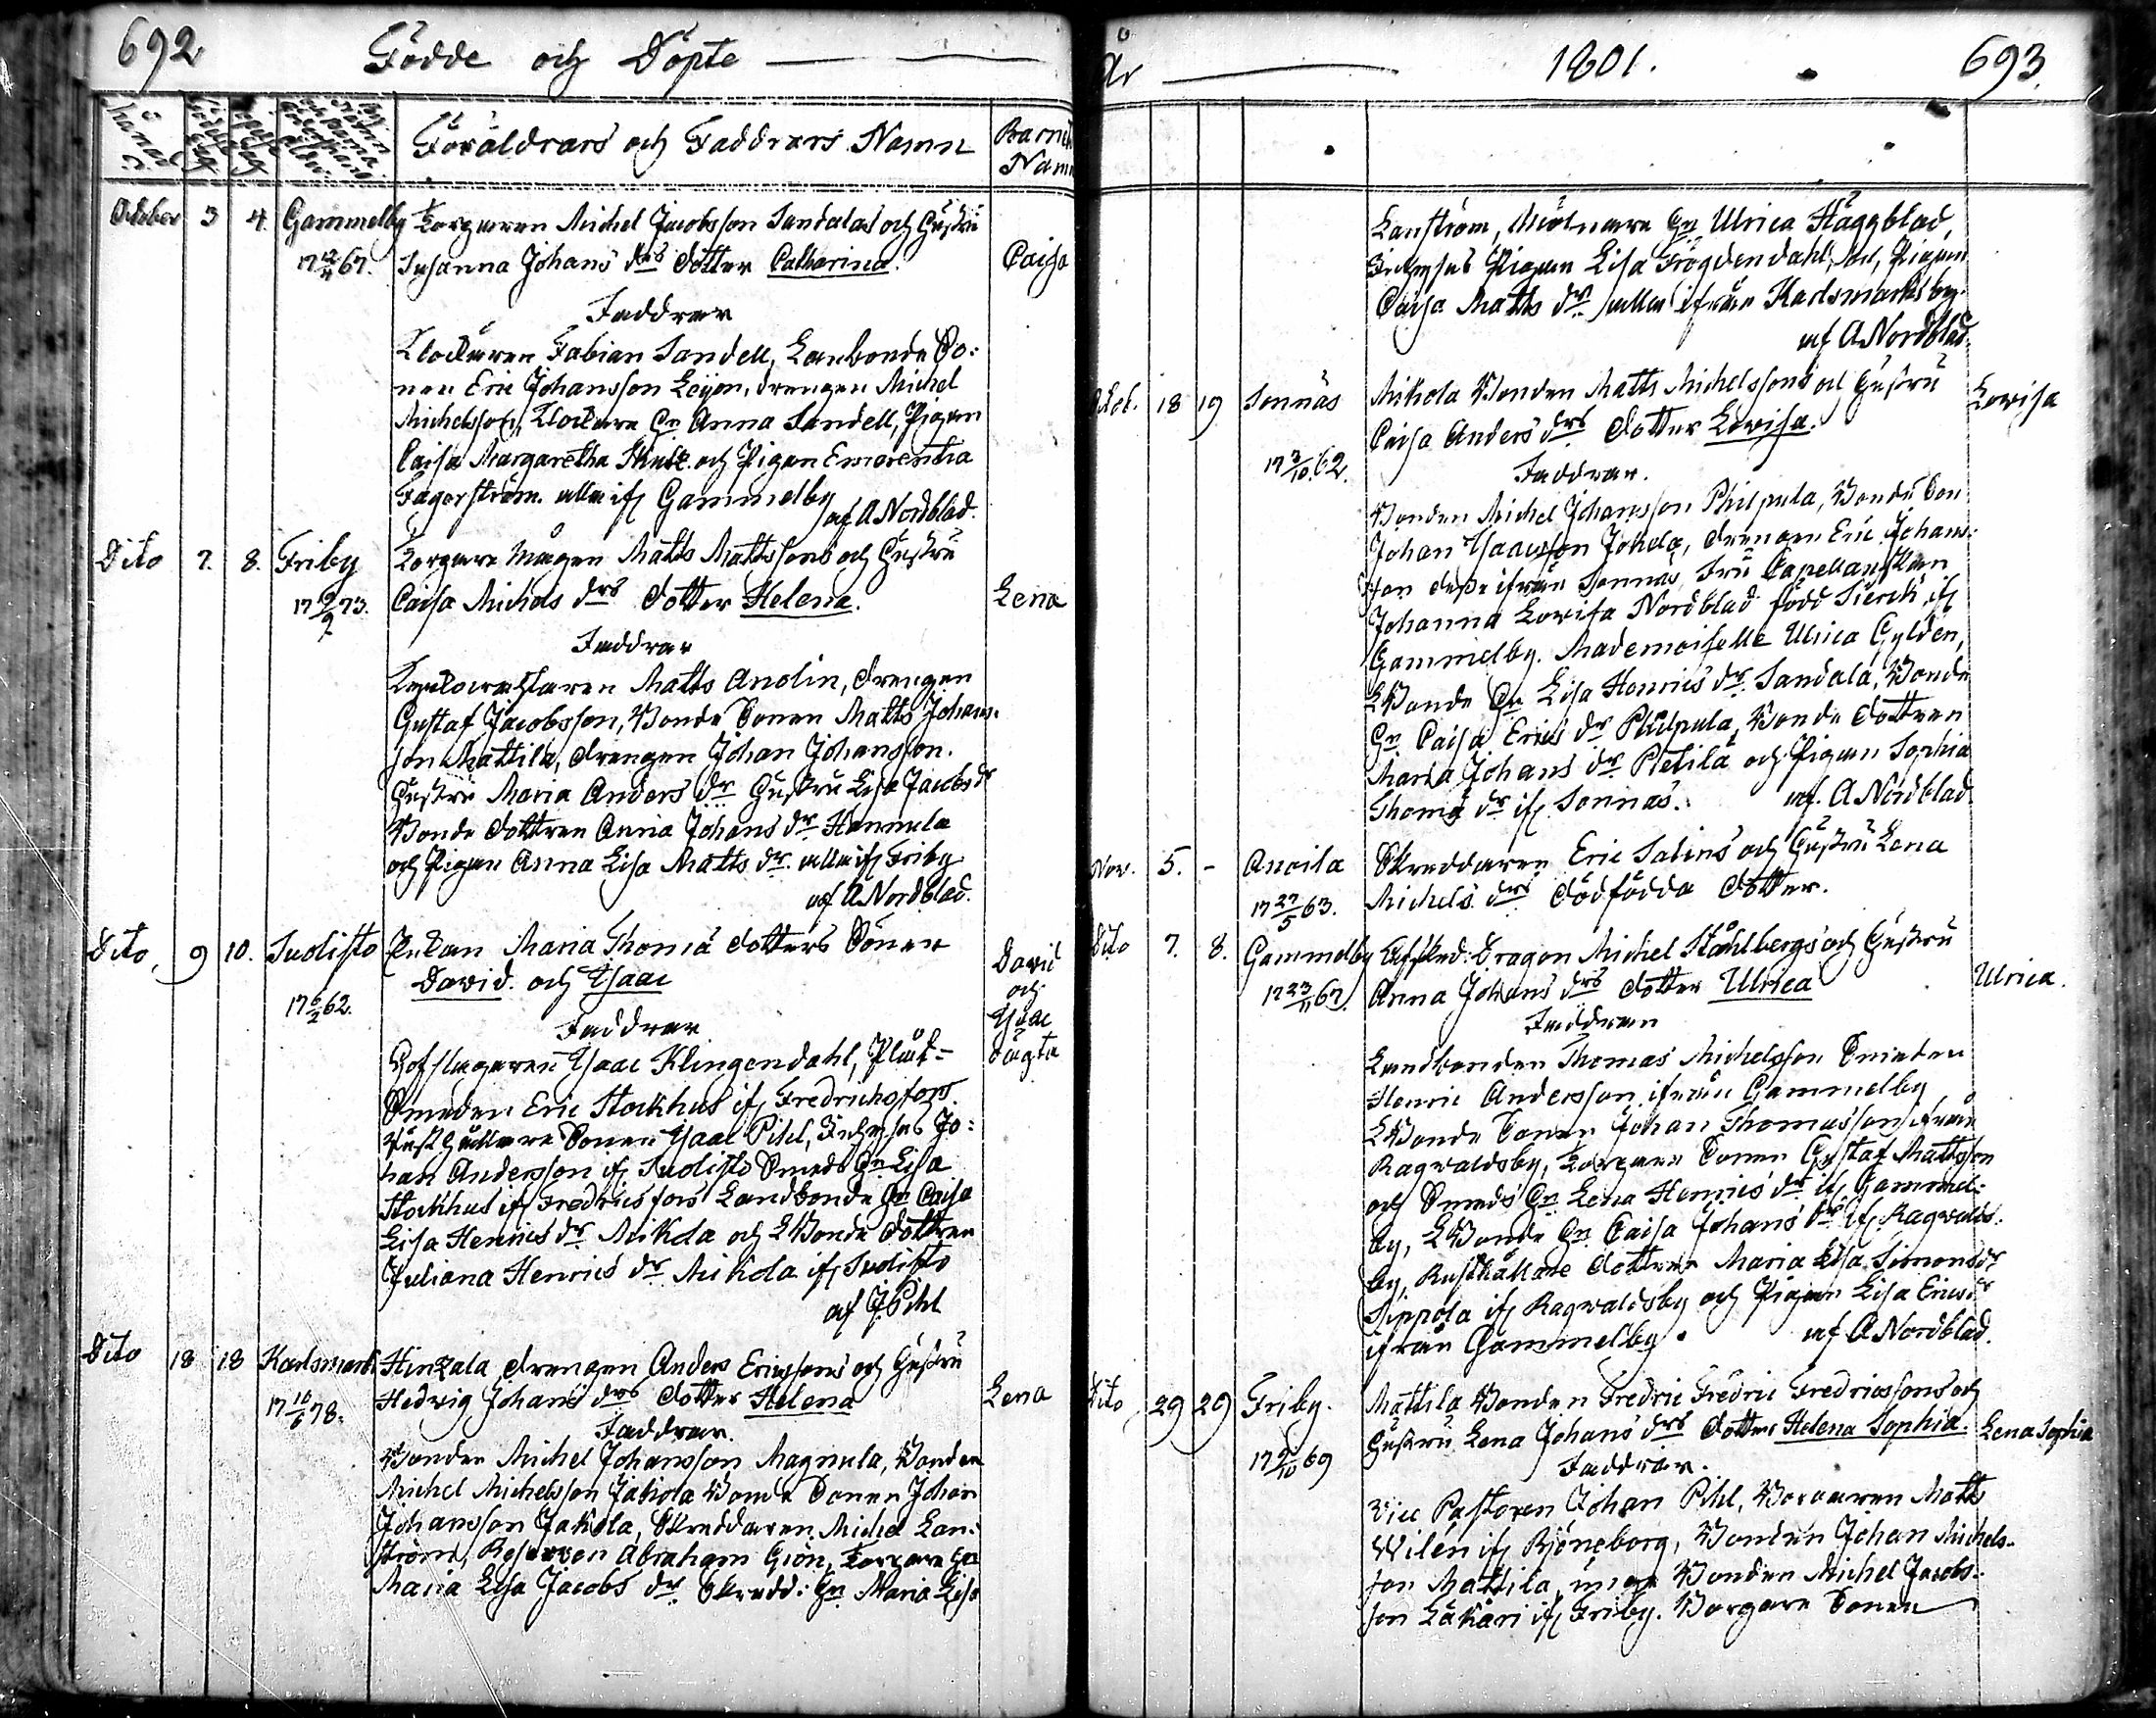 692
Födde och Döpte
Månad
Föräldrars och Faddrars Namn
Barnets
Namn
October 3 4. Gammelby Torparen Michel Jacobsson Sandalas och Hustru
17 12/11 67. Susanna Johans drs dotter Catharina. Caisa
Faddrar
Klockaren Fabian Sandell, Lanbonde So:
nen Eric Johansson Leijon, drengen Michel
Michelsson, Klockare Hu Anna Sandell, Pigan
Caisa Margaretha och Pigan Emerentia
Fagerström. alla if Gammelby
af A Nordblad.
Dito 7. 8. Friby Torpare Mågen Matts Mattssons och Hustru
17 9/9 73. Caisa Michels drs dotter Helena. Lena
Faddrar
Matts Anolin, drengen
Gustaf Jacobsson, Bonde Sonen Matts Johans-
son Mattila, drengen Johan Johansson.
Hustru Maria Anders dr Hustru Lisa Jacobs dr
Bonde dottren Anna Johans dr Hannula
och Pigan Anna Lisa Matts dr alla if Friby
af A Nordblad.
Dito, 9 10. Suolisto Enkan Maria Thomæ dotters Söner David
17 6/2 62. David. och Isaac och
Faddrar Isaac
Isaac Klingendahl,
Smeden Eric Stockhus if Fredrichsfors.
Rusthållare Sonen Isaac Pihl, Inhyses Jo:
han Andersson if Suolisto Smeds Hu Lisa
Stockhus if Fredricsfors Landbonde Hu Caisa
Lisa Henrics dr Mikola och LBonde dottren
Juliana Henrics dr Mikola if Suolisto
af J. Pihl
Dito 18 18 Karlsmark Hinzala drengen Anders Ericssons och Hustru
17 10/6 78. Hedvig Johans drs dotter Helena Lena
Faddrar.
Bonden Michel Johansson Magnula, Bonden
Michel Michelsson Jakola Bonde Sonen Johan
Johansson Jakola, Skreddaren Michel Lan-
ström, Reserven Abraham Grön, Torpare Hu
Maria Lisa Jacobs dr Skredd: Hu Maria Lisa
År 1801. 693.
Lanström, Mölnare Hu Ulrica Häggblad,
Inhyses Pigan Lisa Frögdendahl, och Pigan
Caisa Matts dr alla ifrån Karlsmarksby.
af A Nordblad.
Oct. 18 19 Sonnäs Mikola Bonden Matts Michelssons och Hustru Lovisa
17 3/10 62. Caisa Anders drs dotter Lovisa.
Faddrar.
Bonden Michel Johansson Philpula, Bonde Son
Johan Isaacsson Jokela, drengen Eric Johans-
son desse ifrån Sonnäs Fru Capellanskan
Johanna Lovisa Nordblad född Sierck if
Gammelby. Mademoiselle Ulrica Gylden,
LBonde Hu Lisa Henrics dr Sandala, Bonde
Hu Caisa Erics dr Philpula, Bonde dottren
Maria Johans dr Pietilä och Pigan Sophia
Thomæ dr if Sonnäs. af A Nordblad
Nov. 5. - Anoila Skreddaren Eric Salins och Hustru Lena
17 27/5 63. Michels drs dödfödda dotter.
Dito 7. 8. Gammelby Afsked: Dragon Michel Ståhlbergs och Hustru
17 23/11 67. Anna Johans drs dotter Ulrica Ulrica.
Faddrar
Landbonden Thomas Michelsson Smeden
Henric Andersson ifrån Gammelby
LBonde Sonen Johan Thomasson ifrån
Ragwaldsby, Torpare Sonen Gustaf Mattsson
och Smeds Hu Lena Henrics dr if Gammel-
by, LBonde Hu Caisa Johans dr if Ragwalds-
by, Rusthållare dottren Maria Lisa Simons dr
Sippola if Ragwaldsby och Pigan Lisa Erics dr
ifrån Gammelby. af A Nordblad.
Dito 29 29 Friby. Mattila Bonden Fredric Fredric Fredricssons och
17 9/10 69 Hustru Lena Johans drs dotter Helena Sophia. Lena Sophia
Faddrar.
Vice Pastoren Johan Pihl, Borgaren Matts
Wilén if Björneborg, Bonden Johan Michels-
son Mattila, Bonden Michel Jacobs-
son Läkäri if Friby. Borgare Sonen